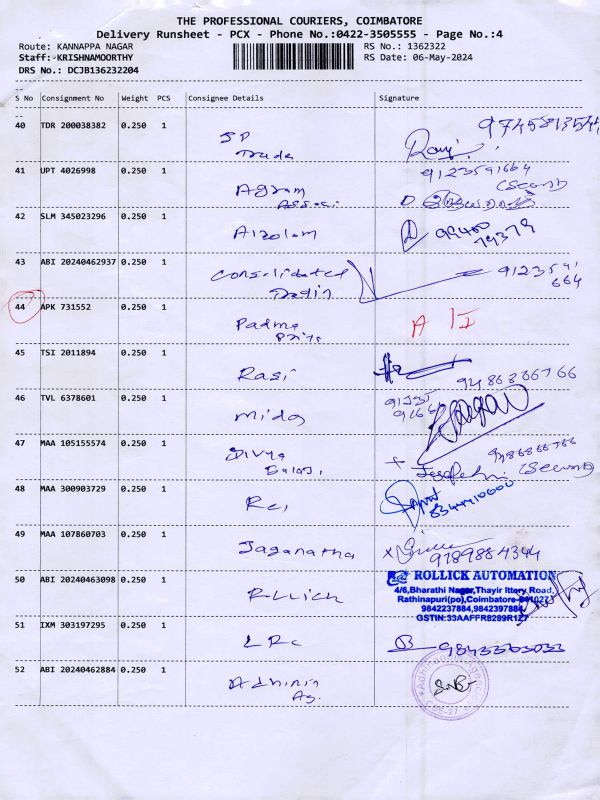 THE PROFESSIONAL COURIERS, COIMBATORE
Delivery Runsheet - PCX - Phone No.:0422-3505555 - Page No.:4
Route: KANNAPPA NAGAR RS No.: 1362322
Staff: KRISHNAMOORTHY RS Date: 06-May-2024
DRS No.: DCJB136232204
S No Consignment No Weight PCS Consignee Details Signature
40 TDR 200038382 0.250 1 SP
Trade
41 UPT 4026998 0.250 1 Agram 9123591664
(Second)
42 SLM 345023296 0.250 1 99400
74379
43 ABI 20240462937 0.250 1 Consolidated 91235 91
664
44 APK 731552 0.250 1 Padma A
45 TSI 2011894 0.250 1 Rasi
46 TVL 6378601 0.250 1
47 MAA 105155574 0.250 1 Divya (Second)
Balaji
48 MAA 300903729 0.250 1 Rci 8344410600
49 MAA 107860703 0.250 1 Jaganatha 9789884344
50 ABI 20240463098 0.250 1 ROLLICK AUTOMATION
4/6,Bharathi Nagar,Thayir Ittery Road,
Rathinapuri(po),Coimbatore-641027
9842237884,9842397884
GSTIN:33AAFFR8289R1Z7
51 IXM 303197295 0.250 1 LRC
52 ABI 20240462884 0.250 1 Ag.